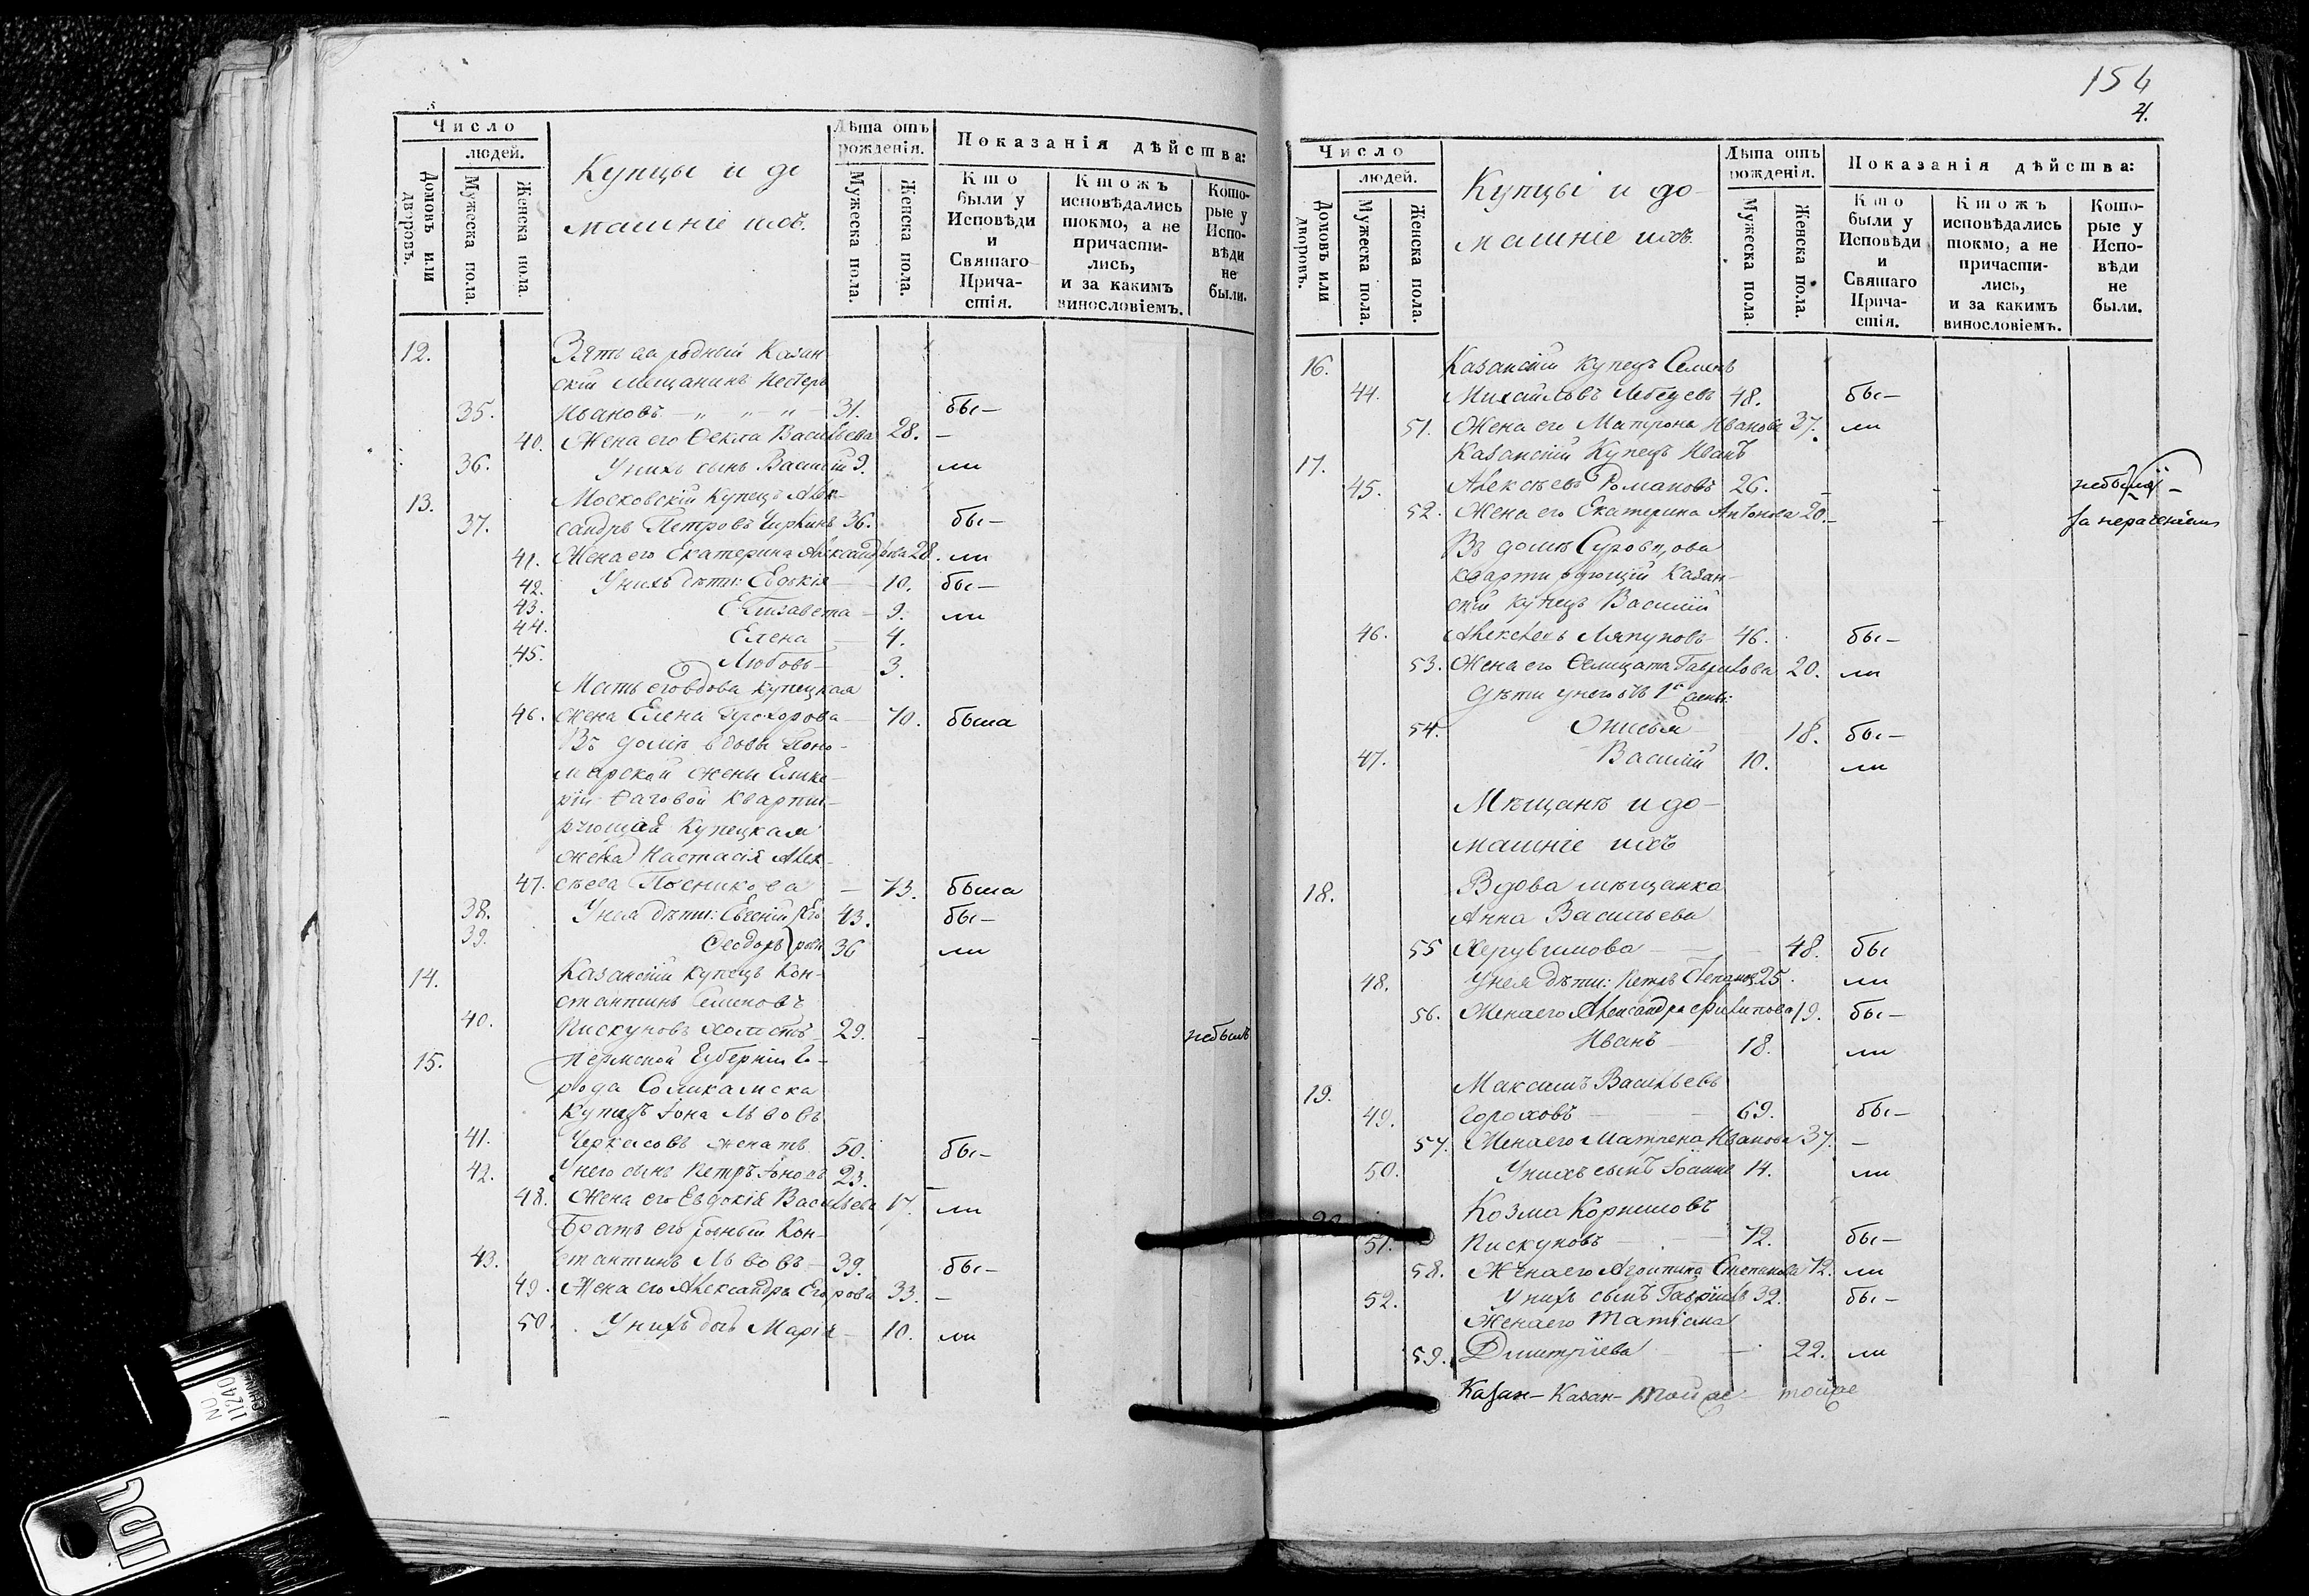 Число
людей.
Домовъ или дворовъ.
Мужеска пола.
Женска пола.
Купцы и до
машніе ихъ.
Лѣта отъ
рожденія.
Мужеска пола.
Женска пола.
Показанія дѣйства:
Кто
были у
Исповѣди
и
Святаго
Прича-
стія.
Ктожъ
исповѣдались
токмо, а не
причасти-
лись,
и за какимъ
винословіемъ.
Кото-
рые у
Испо-
вѣди
не
были.
12. Зять ея родный Казан
скій мещанинъ Нестеръ
35. Ивановъ — „ — „ — 31. бы—
40. Жена его Ѳекла Васильева 28. —
36. У нихъ сынъ Василій 9. ли
13. Московскій Купецъ Алек-
37. сандръ Петровъ Чиркинъ 36. бы—
41. Жена его Екатерина Александрова 28. ли
42. У нихъ дѣти: Евдокія — 10. бы—
43. Елизавета — 9. ли
44. Елена — 4.
45. Любовь — 3.
Мать его вдова купецкая
46. жена Елена Прохорова — 70. была
Въ домѣ вдовы Поно-
марской жены Глике-
ріи Фаговой кварти-
рующая Купецкая
жена Настасія Алек-
47. сѣева Посникова — 73. была
38. У нея дѣти: Евсевій Его 43. бы—
39. Ѳеодоръ ровы 36 ли
14. Казанскій купецъ Кон-
стантинъ Семеновъ
40. Пискуновъ холостъ 29. — — небылъ
15. Пермской Губерніи Го-
рода Соликамска
Купецъ Іона Львовъ
41. Черкасовъ женатъ 50. бы—
42. У него сынъ Петръ Іоновъ 23. —
48. Жена его Евдокія Васильева 17. ли
Братъ его родный Кон-
43. стантинъ Львовъ — 39. бы—
49. Жена его Александра Егорова 33. —
50. У нихъ дочь Марія — 10. ли
154
4.
Число
людей.
Домовъ или дворовъ.
Мужеска пола.
Женска пола.
Купцы и до-
машніе ихъ.
Лѣта отъ
рожденія.
Мужеска пола.
Женска пола.
Показанія дѣйства:
Кто
были у
Исповѣди
и
Святаго
Прича-
стія.
Ктожъ
исповѣдались
токмо, а не
причасти-
лись,
и за какимъ
винословіемъ.
Кото-
рые у
Испо-
вѣди
не
были.
16. Казанскій купецъ Семенъ
44. Михайловъ Лебедевъ 48. бы—
51. Жена его Матрона Иванова 37. ли
17. Казанскій Купецъ Иванъ
45. Алексѣевъ Романовъ 26. — — небыли —
52. Жена его Екатерина Антонова 20. — — за нераченіемъ
Въ домѣ Суровцова
квартирующій Казан-
скій купецъ Василій
46. Алексѣевъ Ляпуновъ 46. бы—
53. Жена его Ѳелицата Гаврилова 20. ли
дѣти у него отъ 1й жены:
54. Анисья 18. бы—
47. Василій 10. ли
Мѣщанѣ и до-
машніе ихъ
18. Вдова мѣщанка
Анна Васильева
55 Херувимова — 48. бы
48. У нея дѣти: Петръ Степановъ 25. ли
56. Жена его Александра Филипова 19. бы—
Иванъ — 18. ли
19. Максимъ Васильевъ
49. Гороховъ — 69. бы—
57. Жена его Матрена Иванова 37. —
50. У нихъ сынъ Іоаннъ 14. ли
20. Козма Корниловъ
51. Пискуновъ — 72. бы—
58. Жена его Агрипина Степанова 72. ли
52. У нихъ сынъ Гаврiилъ 32. бы—
Жена его Татіана
59. Дмитріева — 22. ли
Казан— Казан— тойже — тойже